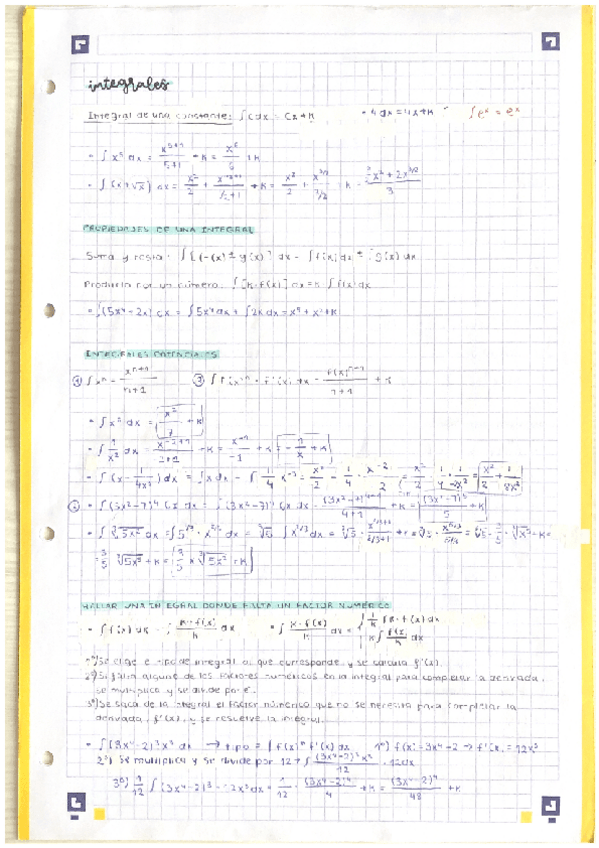 integrales
Integral de una constante: ∫ C dx = Cx + K • 4 dx = 4x + K ∫ eˣ = eˣ
• ∫ x⁵ dx = x⁵⁺¹/5+1 + K = x⁶/6 + K
• ∫ (x+√x) dx = x²/2 +
PROPIEDADES DE UNA INTEGRAL
Suma y resta: ∫ [f(x) ± g(x)] dx = ∫ f(x) dx ± ∫ g(x) dx
Producto por un número: ∫ [K·f(x)] dx = K ∫ f(x) dx
• ∫ (5x⁴ - 2x) dx = ∫ 5x⁴ dx + ∫ 2x dx = x⁵ + x² + K
INTEGRALES POTENCIALES
① ∫ xⁿ = xⁿ⁺¹/n+1 ② ∫ f(x)ⁿ · f'(x) dx = f(x)ⁿ⁺¹/n+1 + K
dx = + K
• ∫ 1/x² dx = + K = x⁻¹/-1 + K = -1/x + K
• ∫ (x - 1/4x³) dx = ∫ x dx - ∫ 1/4 x⁻³ = x²/2 - 1/4 · x⁻²/-2 = x²/2 + 1/8x²
• ∫ (3x²-7)⁴ 6x dx = ∫ (3x²-7)⁴ 6x dx = (3x²-7)⁴⁺¹/4+1 + K = (3x²-7)⁵/5 + K
• ∫ ∛5x² dx = ∫ 5^1/3 · x^2/3 dx = ∛5
= 3/5 + K =
HALLAR UNA INTEGRAL DONDE FALTA UN FACTOR NUMÉRICO
• ∫ f(x) dx = ∫ K·f(x)/K dx • ∫ K·f(x)/K dx = 1/K ∫ K·f(x) dx
K ∫ f(x)/K dx
1º) Se elige el tipo de integral al que corresponde y se calcula f'(x).
2º) Si falta alguno de los factores numéricos en la integral para completar la derivada,
se multiplica y se divide por él.
3º) Se saca de la integral el factor numérico que no se necesita para completar la
derivada, f'(x), y se resuelve la integral.
• ∫ (3x⁴-2)³ x³ dx → tipo = ∫ f(x)ⁿ f'(x) dx 1º) f(x) = 3x⁴-2 → f'(x) = 12x³
2º) Se multiplica y se divide por 12 → ∫ (3x⁴-2)³ x³/12 · 12 dx
3º) 1/12 ∫ (3x⁴-2)³ · 12x³ dx = 1/12 · (3x⁴-2)⁴/4 + K = (3x⁴-2)⁴/48 + K